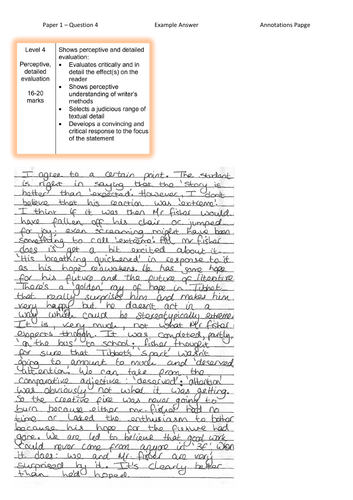 Paper 1 – Question 4 Example Answer Annotations Papge
Level 4
Perceptive, detailed evaluation
16-20 marks
Shows perceptive and detailed evaluation:
• Evaluates critically and in detail the effect(s) on the reader
• Shows perceptive understanding of writer's methods
• Selects a judicious range of textual detail
• Develops a convincing and critical response to the focus of the statement
I agree to a certain point. The student
is right in saying that the 'story is
better than expected'. However, I don't
believe that his reaction was 'extreme'.
I think if it was then Mr Fisher would
have fallen off his chair or jumped
for joy; even screaming might have been
something to call 'extreme'. Mr Fisher
does get a bit excited about it.
'His breathing quickened' in response to it
as his hope reawakens. He has some hope
for his future and the future of literature.
There's a 'golden' ray of hope in Tibbot
that really surprises him and makes him
very happy but he doesn't act in a
way which could be stereotypically extreme.
It is very much not what Mr Fisher
expects though. It was completed, partly,
'on the bus' to school; Fisher thought
for sure that Tibbot's 'spark' wasn't
going to amount to much and 'deserved
attention'. We can take from the
comparative adjective: 'deserved'; attention
was obviously not what it was getting.
So the creative fire was never going to
burn because either Mr Fisher had no
time or lacked the enthusiasm to bother
because his hope for the future had
gone. We are led to believe that good work
could never come from anyone in '3F' when
it does: we and Mr Fisher are very
surprised by it. It's clearly better
than he'd hoped.